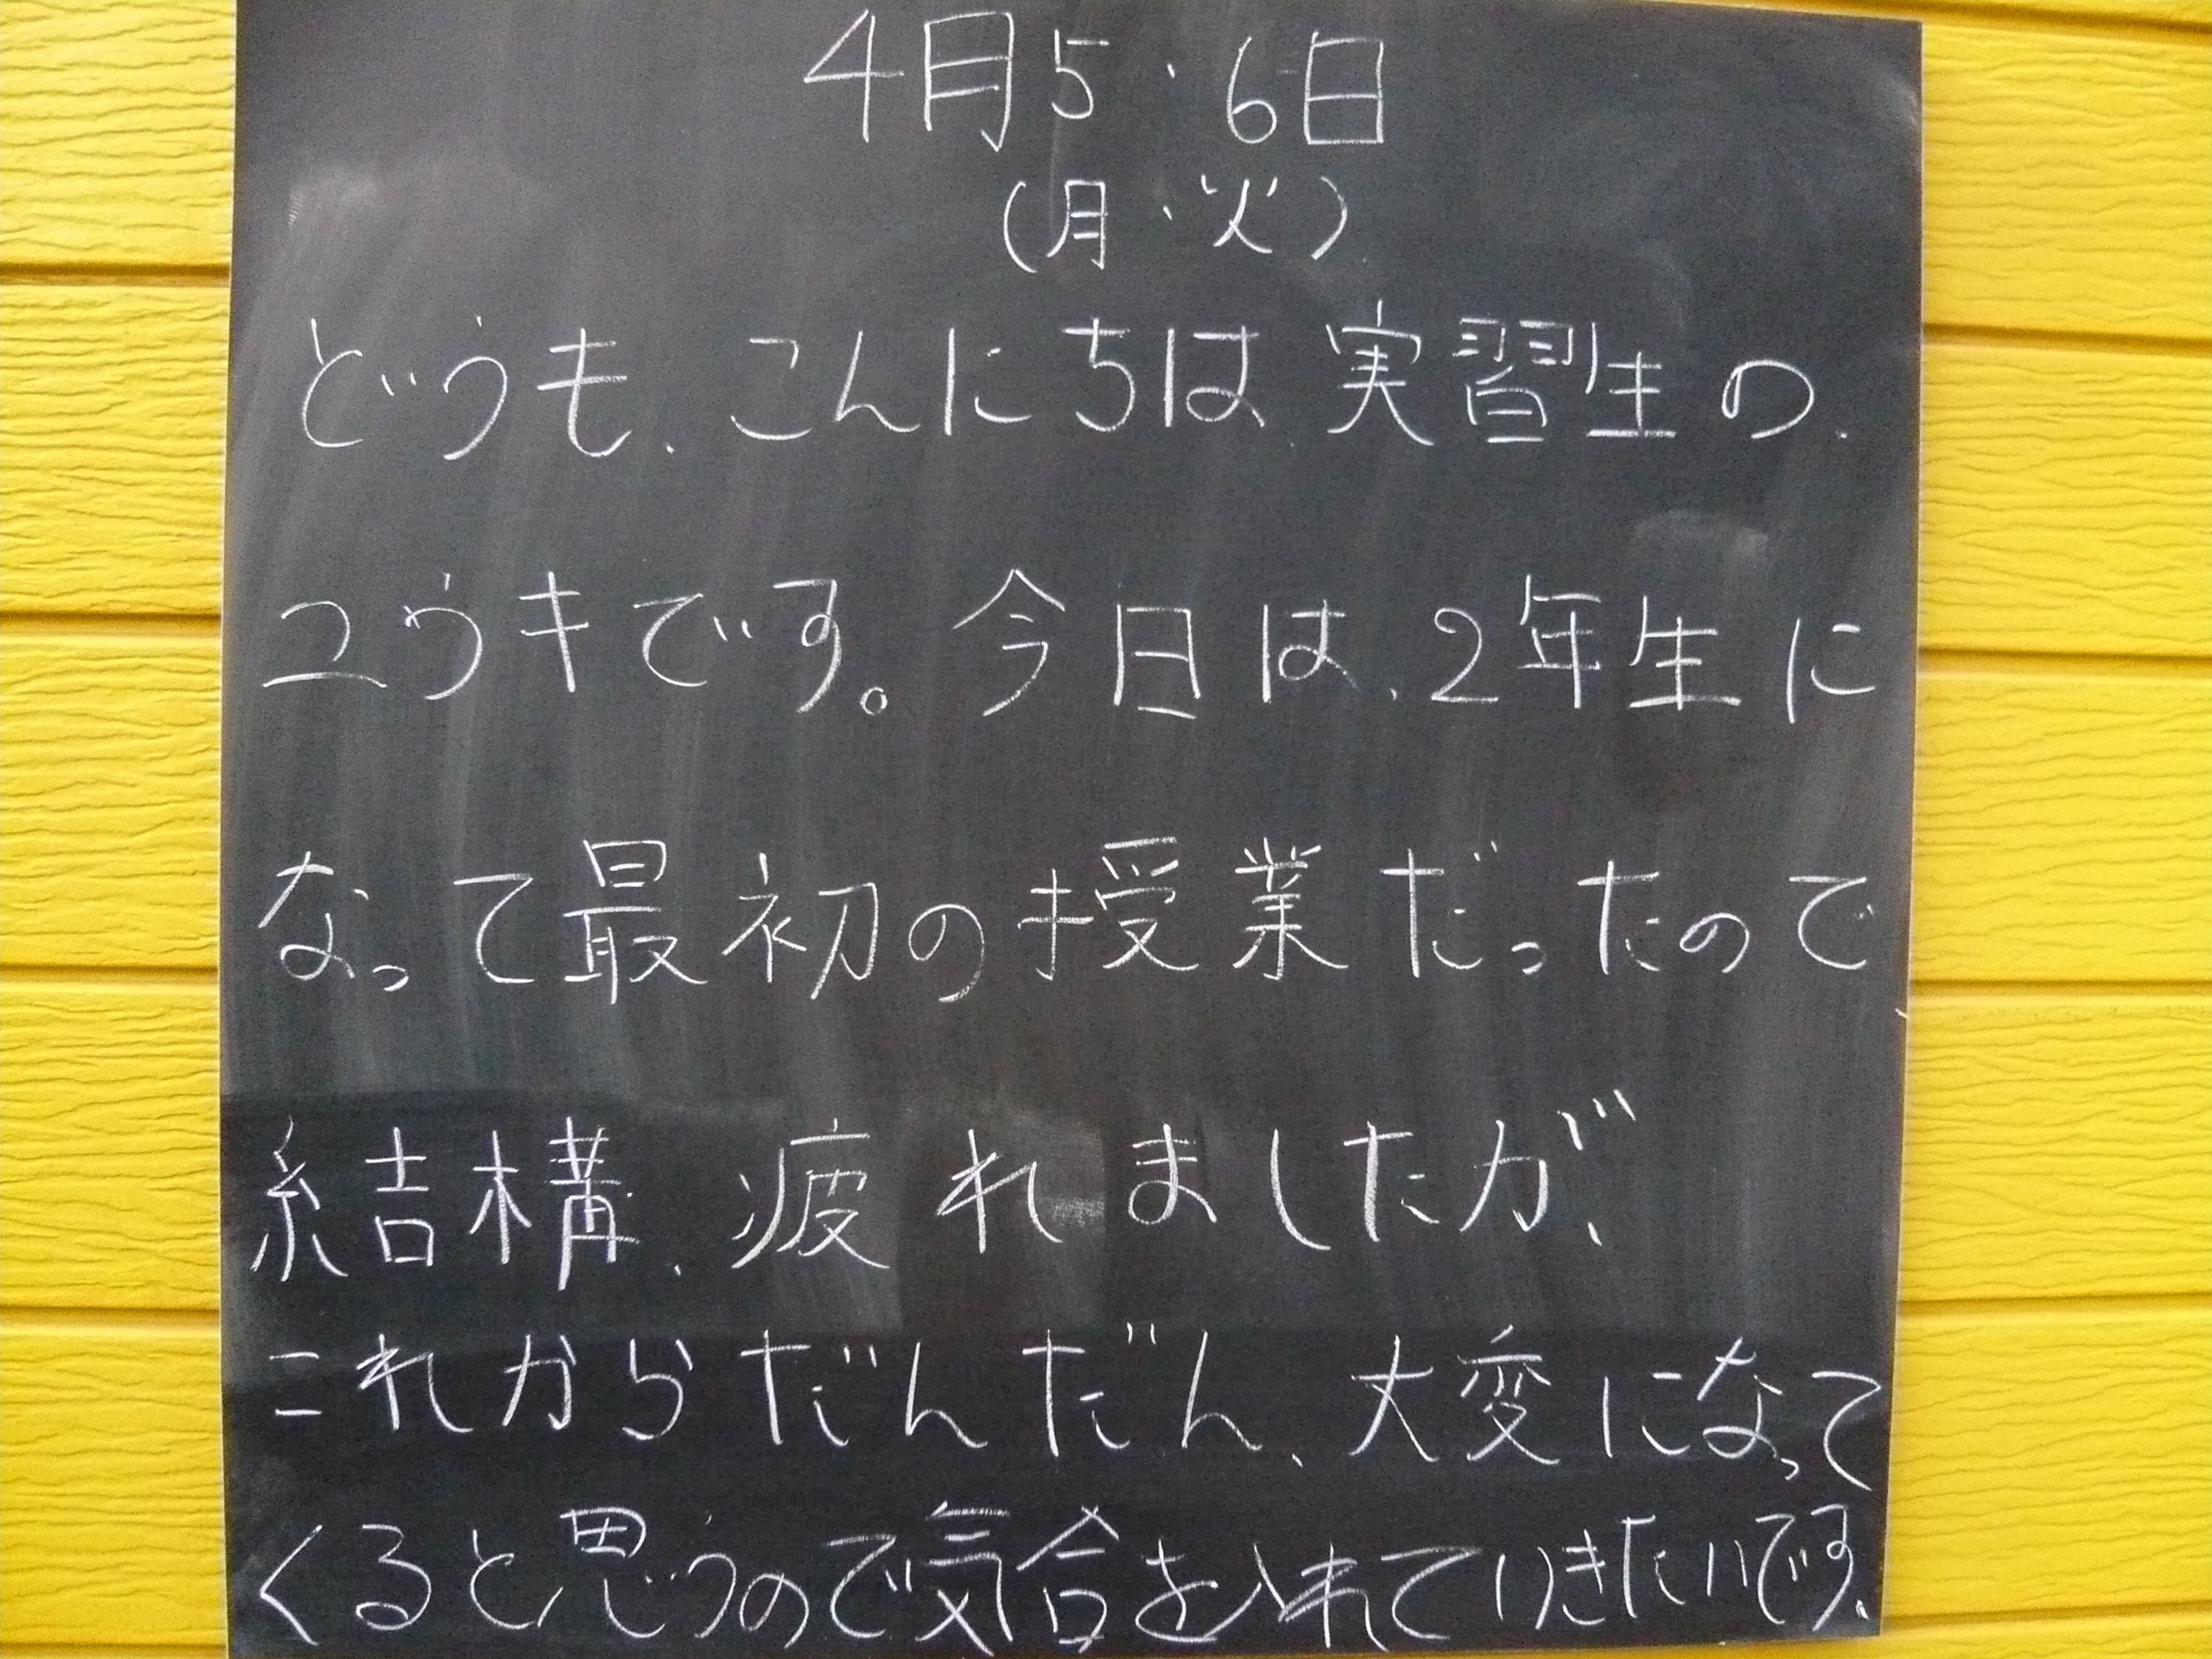 4月5・6日
(月・火)
どうも、こんにちは、実習生の、
ユウキです。今日は、2年生に
なって最初の授業だったので
結構、疲れましたが、
これからだんだん、大変になって
くると思うので気合を入れていきたいです。